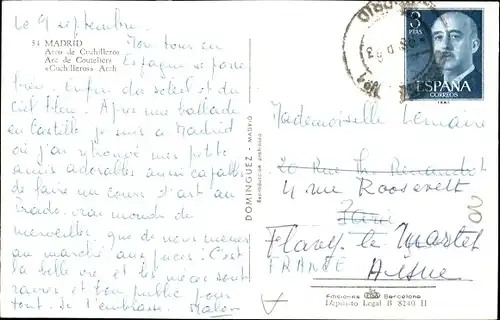 le 9 septembre.
54 MADRID
Arco de Cuchilleros
Arc de Couteliers
«Cuchilleros» Arch
Mon tour en
Espagne se passe
bien. Enfin du soleil et du
ciel bleu. Après une ballade
en Castille je suis à Madrid
où j'ai retrouvé mes petits
amis adorables aussi capables
de faire un cours d'art au
Prado, vrai monde de
merveilles, que de nous mener
au marché aux puces. C'est
la belle vie et les nièces sont
ravies et bon public pour
tout. Je t'embrasse.
DOMINGUEZ - MADRID
Reproducción prohibida
3
PTAS
ESPAÑA
CORREOS
MADRID
Mademoiselle Lemaire
20 Rue Th. Renaudot
4 rue Roosevelt
Paris
Flavy le Martel
FRANCE Aisne
Ediciones Barcelona
Depósito Legal B 8240 II